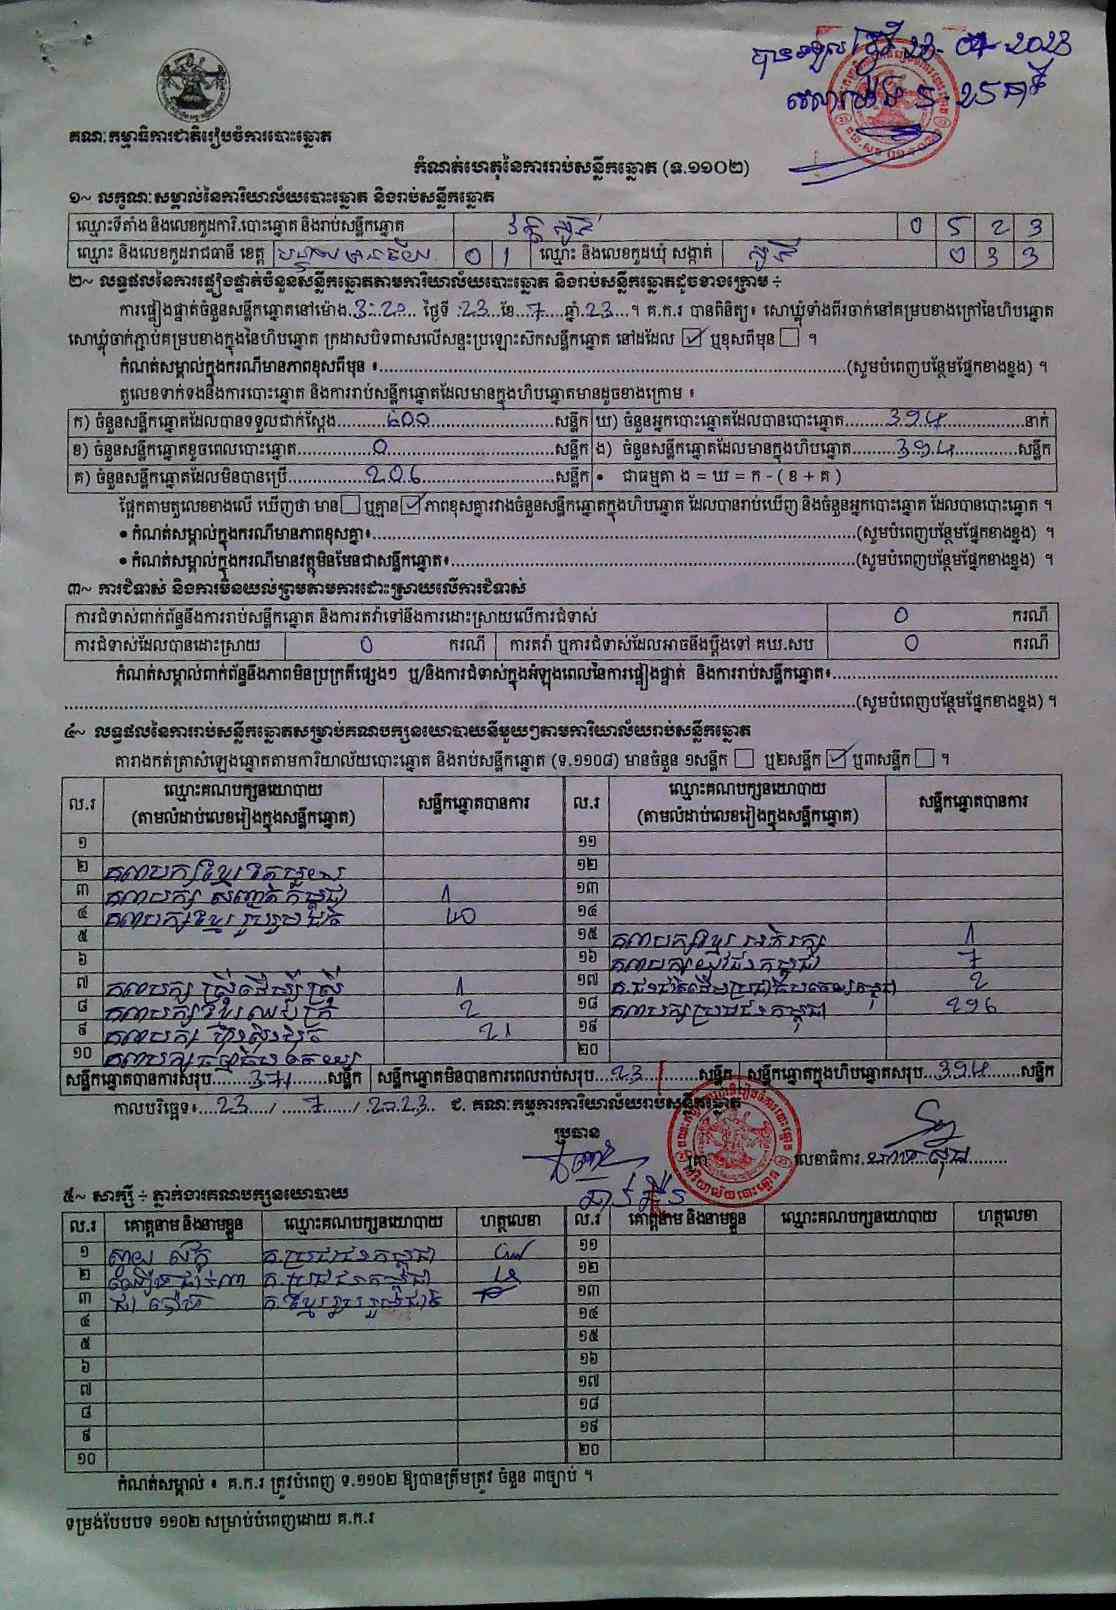 បានទទួល ថ្ងៃទី 23-07-2023
គណៈកម្មាធិការជាតិរៀបចំការបោះឆ្នោត
កំណត់ហេតុនៃការរាប់សន្លឹកឆ្នោត (ទ.១១០២)
១~ លក្ខណៈសម្គាល់នៃការិយាល័យបោះឆ្នោត និងរាប់សន្លឹកឆ្នោត
ឈ្មោះទីតាំង និងលេខកូដការិ.បោះឆ្នោត និងរាប់សន្លឹកឆ្នោត 0 5 2 3
ឈ្មោះ និងលេខកូដរាជធានី ខេត្ត បន្ទាយមានជ័យ 0 1 ឈ្មោះ និងលេខកូដឃុំ សង្កាត់ 0 3 3
២~ លទ្ធផលនៃការផ្ទៀងផ្ទាត់ចំនួនសន្លឹកឆ្នោតតាមការិយាល័យបោះឆ្នោត និងរាប់សន្លឹកឆ្នោតដូចខាងក្រោម ÷
ការផ្ទៀងផ្ទាត់ចំនួនសន្លឹកឆ្នោតនៅម៉ោង 3:20 ថ្ងៃទី 23 ខែ 7 ឆ្នាំ 23 ។ គ.ក.រ បានពិនិត្យ៖ សោឃ្នុំទាំងពីរចាក់នៅគម្របខាងក្រៅនៃហិបឆ្នោត
សោឃ្នុំចាក់ភ្ជាប់គម្របខាងក្នុងនៃហិបឆ្នោត ក្រដាសបិទពាសលើសន្ទះប្រឡោះស៊កសន្លឹកឆ្នោត នៅដដែល ☑ ឬខុសពីមុន ☐ ។
កំណត់សម្គាល់ក្នុងករណីមានភាពខុសពីមុន ៖ (សូមបំពេញបន្ថែមផ្នែកខាងខ្នង) ។
តួលេខទាក់ទងនឹងការបោះឆ្នោត និងការរាប់សន្លឹកឆ្នោតដែលមានក្នុងហិបឆ្នោតមានដូចខាងក្រោម ៖
ក) ចំនួនសន្លឹកឆ្នោតដែលបានទទួលជាក់ស្តែង 600 សន្លឹក ឃ) ចំនួនអ្នកបោះឆ្នោតដែលបានបោះឆ្នោត 394 នាក់
ខ) ចំនួនសន្លឹកឆ្នោតខូចពេលបោះឆ្នោត 0 សន្លឹក ង) ចំនួនសន្លឹកឆ្នោតដែលមានក្នុងហិបឆ្នោត 394 សន្លឹក
គ) ចំនួនសន្លឹកឆ្នោតដែលមិនបានប្រើ 206 សន្លឹក • ជាធម្មតា ង = ឃ = ក - ( ខ + គ )
ផ្អែកតាមតួលេខខាងលើ ឃើញថា មាន ☐ ឬគ្មាន ☑ ភាពខុសគ្នារវាងចំនួនសន្លឹកឆ្នោតក្នុងហិបឆ្នោត ដែលបានរាប់ឃើញ និងចំនួនអ្នកបោះឆ្នោត ដែលបានបោះឆ្នោត ។
• កំណត់សម្គាល់ក្នុងករណីមានភាពខុសគ្នា៖ (សូមបំពេញបន្ថែមផ្នែកខាងខ្នង) ។
• កំណត់សម្គាល់ក្នុងករណីមានវត្ថុមិនមែនជាសន្លឹកឆ្នោត៖ (សូមបំពេញបន្ថែមផ្នែកខាងខ្នង) ។
៣~ ការជំទាស់ និងការមិនយល់ព្រមតាមការដោះស្រាយលើការជំទាស់
ការជំទាស់ពាក់ព័ន្ធនឹងការរាប់សន្លឹកឆ្នោត និងការតវ៉ាទៅនឹងការដោះស្រាយលើការជំទាស់ 0 ករណី
ការជំទាស់ដែលបានដោះស្រាយ 0 ករណី ការតវ៉ា ឬការជំទាស់ដែលអាចនឹងប្តឹងទៅ គឃ.សប 0 ករណី
កំណត់សម្គាល់ពាក់ព័ន្ធនឹងភាពមិនប្រក្រតីផ្សេងៗ ឬ/និងការជំទាស់ក្នុងអំឡុងពេលនៃការផ្ទៀងផ្ទាត់ និងការរាប់សន្លឹកឆ្នោត៖
(សូមបំពេញបន្ថែមផ្នែកខាងខ្នង) ។
៤~ លទ្ធផលនៃការរាប់សន្លឹកឆ្នោតសម្រាប់គណបក្សនយោបាយនីមួយៗតាមការិយាល័យរាប់សន្លឹកឆ្នោត
តារាងកត់ត្រាសំឡេងឆ្នោតតាមការិយាល័យបោះឆ្នោត និងរាប់សន្លឹកឆ្នោត (ទ.១១០៨) មានចំនួន ១សន្លឹក ☐ ឬ២សន្លឹក ☑ ឬ៣សន្លឹក ☐ ។
ល.រ ឈ្មោះគណបក្សនយោបាយ (តាមលំដាប់លេខរៀងក្នុងសន្លឹកឆ្នោត) សន្លឹកឆ្នោតបានការ ល.រ ឈ្មោះគណបក្សនយោបាយ (តាមលំដាប់លេខរៀងក្នុងសន្លឹកឆ្នោត) សន្លឹកឆ្នោតបានការ
១ ១១
២ គណបក្សខ្មែរតែមួយ ១២
៣ គណបក្ស សញ្ជាតិកម្ពុជា 1 ១៣
៤ គណបក្សខ្មែររួបរួមជាតិ 40 ១៤
៥ ១៥ គណបក្សខ្មែរអភិរក្ស 1
៦ ១៦ គណបក្សយុវជនកម្ពុជា 7
៧ គណបក្ស ស្ត្រីដើម្បីស្ត្រី 1 ១៧ 2
៨ គណបក្សខ្មែរឈប់ក្រ 2 ១៨ គណបក្សប្រជាជនកម្ពុជា 296
៩ គណបក្ស ហ្វ៊ុនស៊ិនប៉ិច 21 ១៩
១០ គណបក្សធម្មាធិបតេយ្យ ២០
សន្លឹកឆ្នោតបានការសរុប 371 សន្លឹក សន្លឹកឆ្នោតមិនបានការពេលរាប់សរុប 23 សន្លឹក សន្លឹកឆ្នោតក្នុងហិបឆ្នោតសរុប 394 សន្លឹក
កាលបរិច្ឆេទ៖ 23 / 7 / 2023 ជ. គណៈកម្មការការិយាល័យរាប់សន្លឹកឆ្នោត
ប្រធាន
ត្រា លេខាធិការ
៥~ សាក្សី ÷ ភ្នាក់ងារគណបក្សនយោបាយ
ល.រ គោត្តនាម និងនាមខ្លួន ឈ្មោះគណបក្សនយោបាយ ហត្ថលេខា ល.រ គោត្តនាម និងនាមខ្លួន ឈ្មោះគណបក្សនយោបាយ ហត្ថលេខា
១ គ.ប្រជាជនកម្ពុជា ១១
២ គ.ប្រជាជនកម្ពុជា ១២
៣ គ.ខ្មែររួបរួមជាតិ ១៣
៤ ១៤
៥ ១៥
៦ ១៦
៧ ១៧
៨ ១៨
៩ ១៩
១០ ២០
កំណត់សម្គាល់ ៖ គ.ក.រ ត្រូវបំពេញ ទ.១១០២ ឱ្យបានត្រឹមត្រូវ ចំនួន ៣ច្បាប់ ។
ទម្រង់បែបបទ ១១០២ សម្រាប់បំពេញដោយ គ.ក.រ